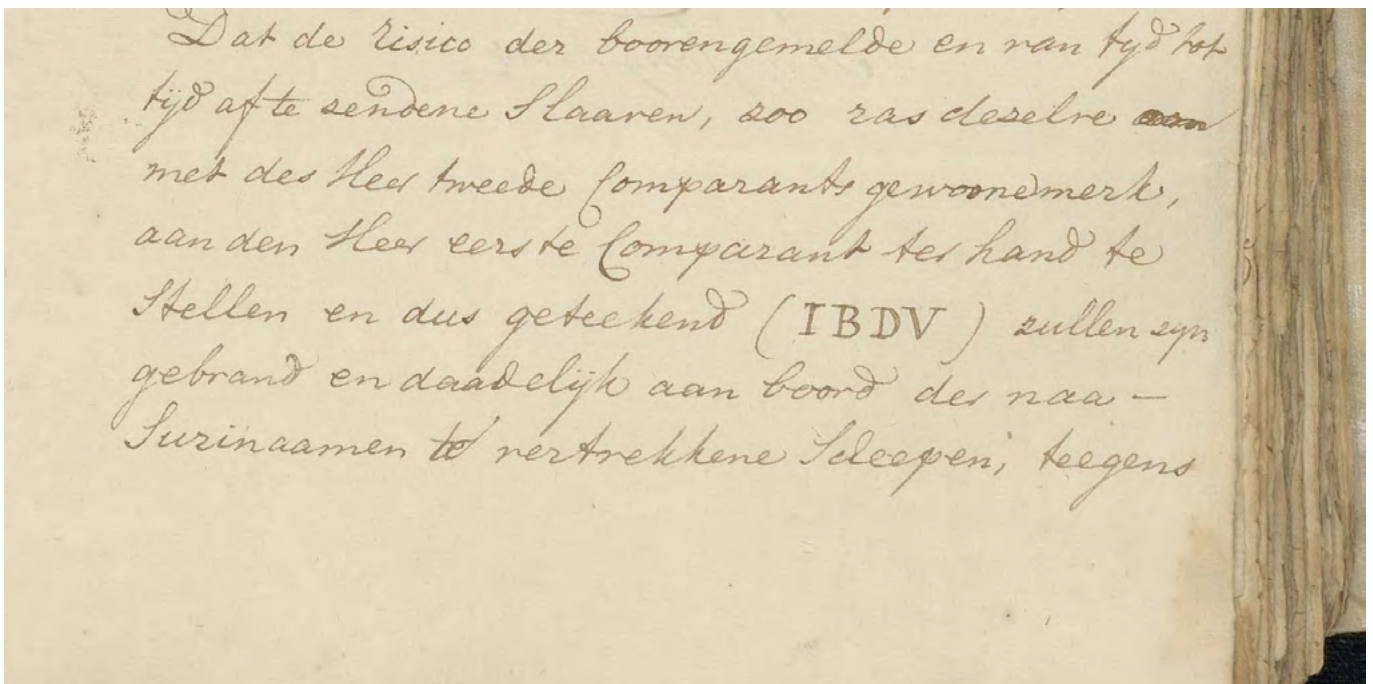 Dat de risico der boovengemelde en van tyd tot
tijd af te zendene Slaaven, zoo ras dezelve aan
met des Heer tweede Comparants gewoone merk,
aan den Heer eerste Comparant ter hand te
Stellen en dus geteekend (IBDV) zullen zyn
gebrand en daadelijk aan boord der naa —
Surinaamen te vertrekkene Scheepen, teegens